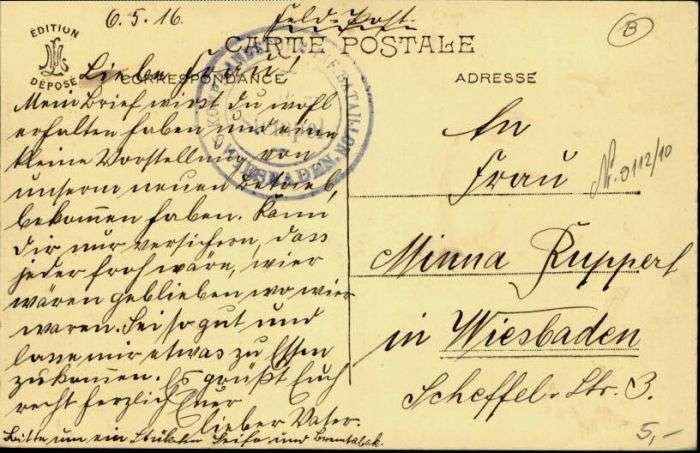 6.5.16.
Feld-Post.
ÉDITION
DÉPOSÉ
CARTE POSTALE
CORRESPONDANCE
ADRESSE
B
Mein Brief wirst Du wohl
erhalten haben und eine
kleine Vorstellung von
unserm neuen Betrieb,
bekommen haben. Kann
Dir nur versichern, dass
jeder froh wäre, wier
wären geblieben wo wier
waren. Sei so gut und
lasse mir etwas zu Essen
zukommen. Es grüßt Euch
recht herzlich Euer
lieber Vater.
Bitte um ein Stükchen Seife und
An
Frau
Minna Ruppert
in Wiesbaden
Scheffel-Str. 3.
Nr. 0112/10
WIESBADEN
5,-